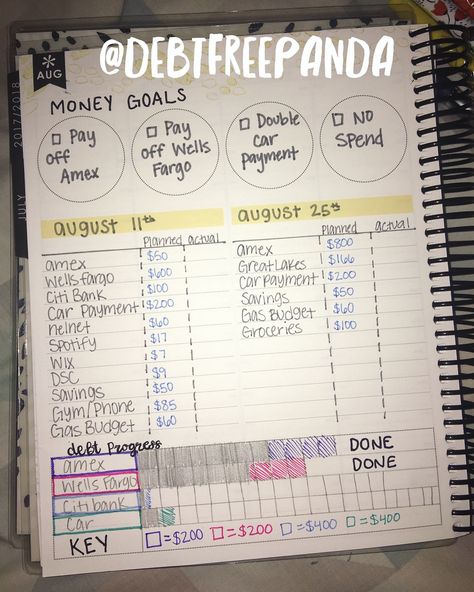 @DEBTFREEPANDA
AUG
2017/2018
JULY
MONEY GOALS
Pay off Amex
Pay off Wells Fargo
Double car payment
No Spend
august 11th
Planned actual
amex $50
Wells fargo $600
Citi Bank $100
Car Payment $200
nelnet $60
Spotify $17
Wix $7
DSC $9
Savings $50
Gym/Phone $85
Gas Budget $60
august 25th
Planned actual
amex $800
Great Lakes $166
Car payment $200
Savings $50
Gas Budget $60
Groceries $100
debt Progress
amex DONE
Wells Fargo DONE
Citibank
Car
KEY =$200 =$200 =$400 =$400